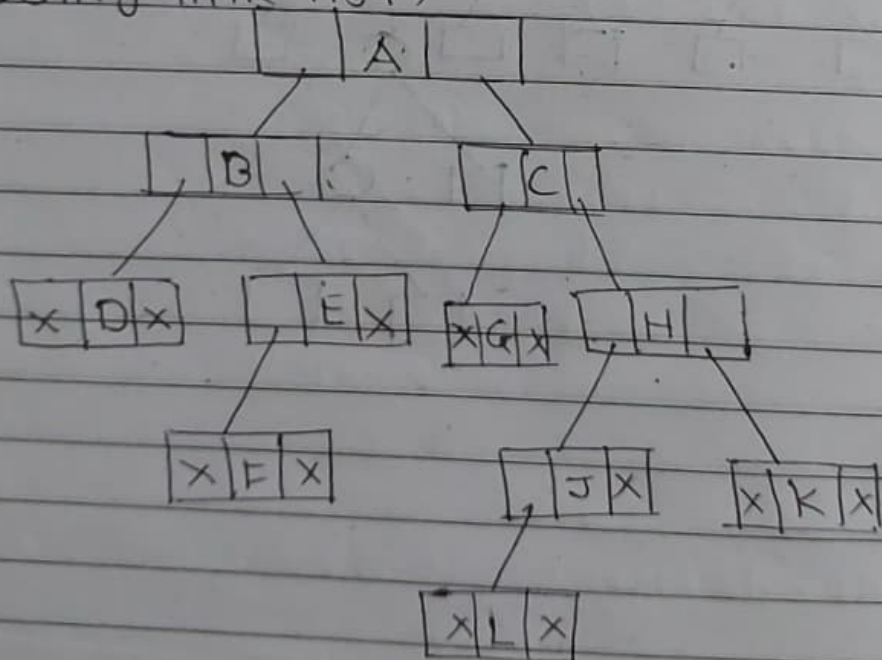 A
B C
X D X E X X G X H
X F X J X X K X
X L X